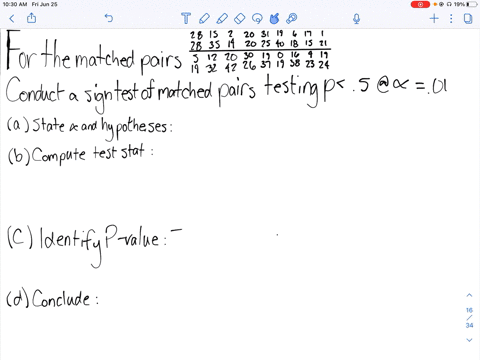 10:30 AM Fri Jun 25
19%
28 15 2 20 31 19 6 17 1
28 35 19 20 25 40 18 15 21
For the matched pairs
5 12 20 30 19 0 16 9 19
19 32 42 26 37 19 38 23 24
Conduct a sign test of matched pairs testing p< .5 @ α = .01
(a) State α and hypotheses:
(b) Compute test stat:
(C) Identify P-value: -
(d) Conclude:
16
/
34